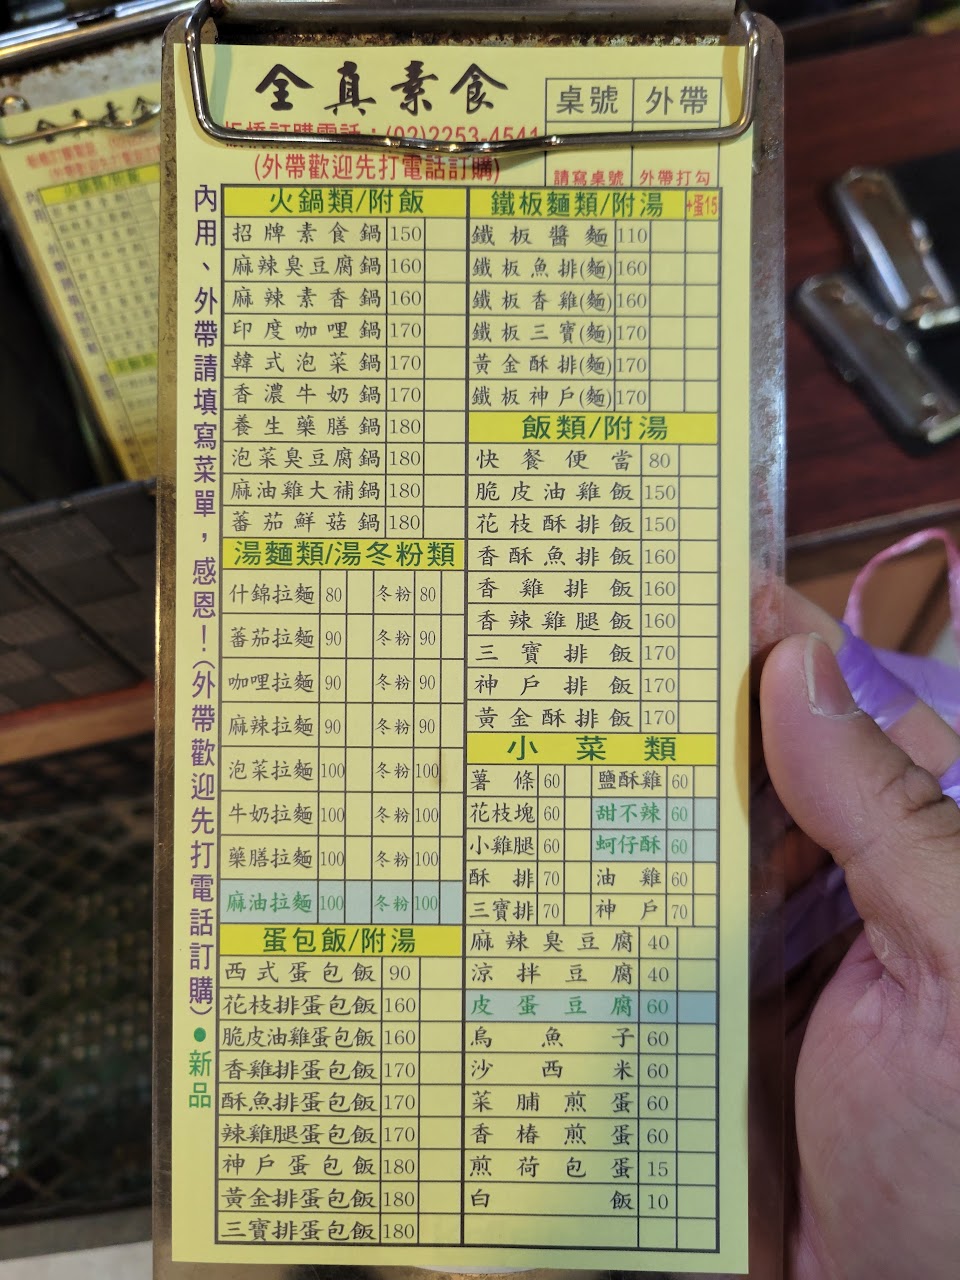 全真素食
板橋訂購電話：(02)2253-4541
(外帶歡迎先打電話訂購)
桌號 外帶
請寫桌號 外帶打勾
內用、外帶請填寫菜單，感恩！(外帶歡迎先打電話訂購)●新品
火鍋類/附飯
招牌素食鍋 150
麻辣臭豆腐鍋 160
麻辣素香鍋 160
印度咖哩鍋 170
韓式泡菜鍋 170
香濃牛奶鍋 170
養生藥膳鍋 180
泡菜臭豆腐鍋 180
麻油雞大補鍋 180
蕃茄鮮菇鍋 180
湯麵類/湯冬粉類
什錦拉麵 80 冬粉 80
蕃茄拉麵 90 冬粉 90
咖哩拉麵 90 冬粉 90
麻辣拉麵 90 冬粉 90
泡菜拉麵 100 冬粉 100
牛奶拉麵 100 冬粉 100
藥膳拉麵 100 冬粉 100
麻油拉麵 100 冬粉 100
蛋包飯/附湯
西式蛋包飯 90
花枝排蛋包飯 160
脆皮油雞蛋包飯 160
香雞排蛋包飯 170
酥魚排蛋包飯 170
辣雞腿蛋包飯 170
神戶蛋包飯 180
黃金排蛋包飯 180
三寶排蛋包飯 180
鐵板麵類/附湯 +蛋15
鐵板醬麵 110
鐵板魚排(麵) 160
鐵板香雞(麵) 160
鐵板三寶(麵) 170
黃金酥排(麵) 170
鐵板神戶(麵) 170
飯類/附湯
快餐便當 80
脆皮油雞飯 150
花枝酥排飯 150
香酥魚排飯 160
香雞排飯 160
香辣雞腿飯 160
三寶排飯 170
神戶排飯 170
黃金酥排飯 170
小菜類
薯條 60 鹽酥雞 60
花枝塊 60 甜不辣 60
小雞腿 60 蚵仔酥 60
酥排 70 油雞 60
三寶排 70 神戶 70
麻辣臭豆腐 40
涼拌豆腐 40
皮蛋豆腐 60
烏魚子 60
沙西米 60
菜脯煎蛋 60
香椿煎蛋 60
煎荷包蛋 15
白飯 10